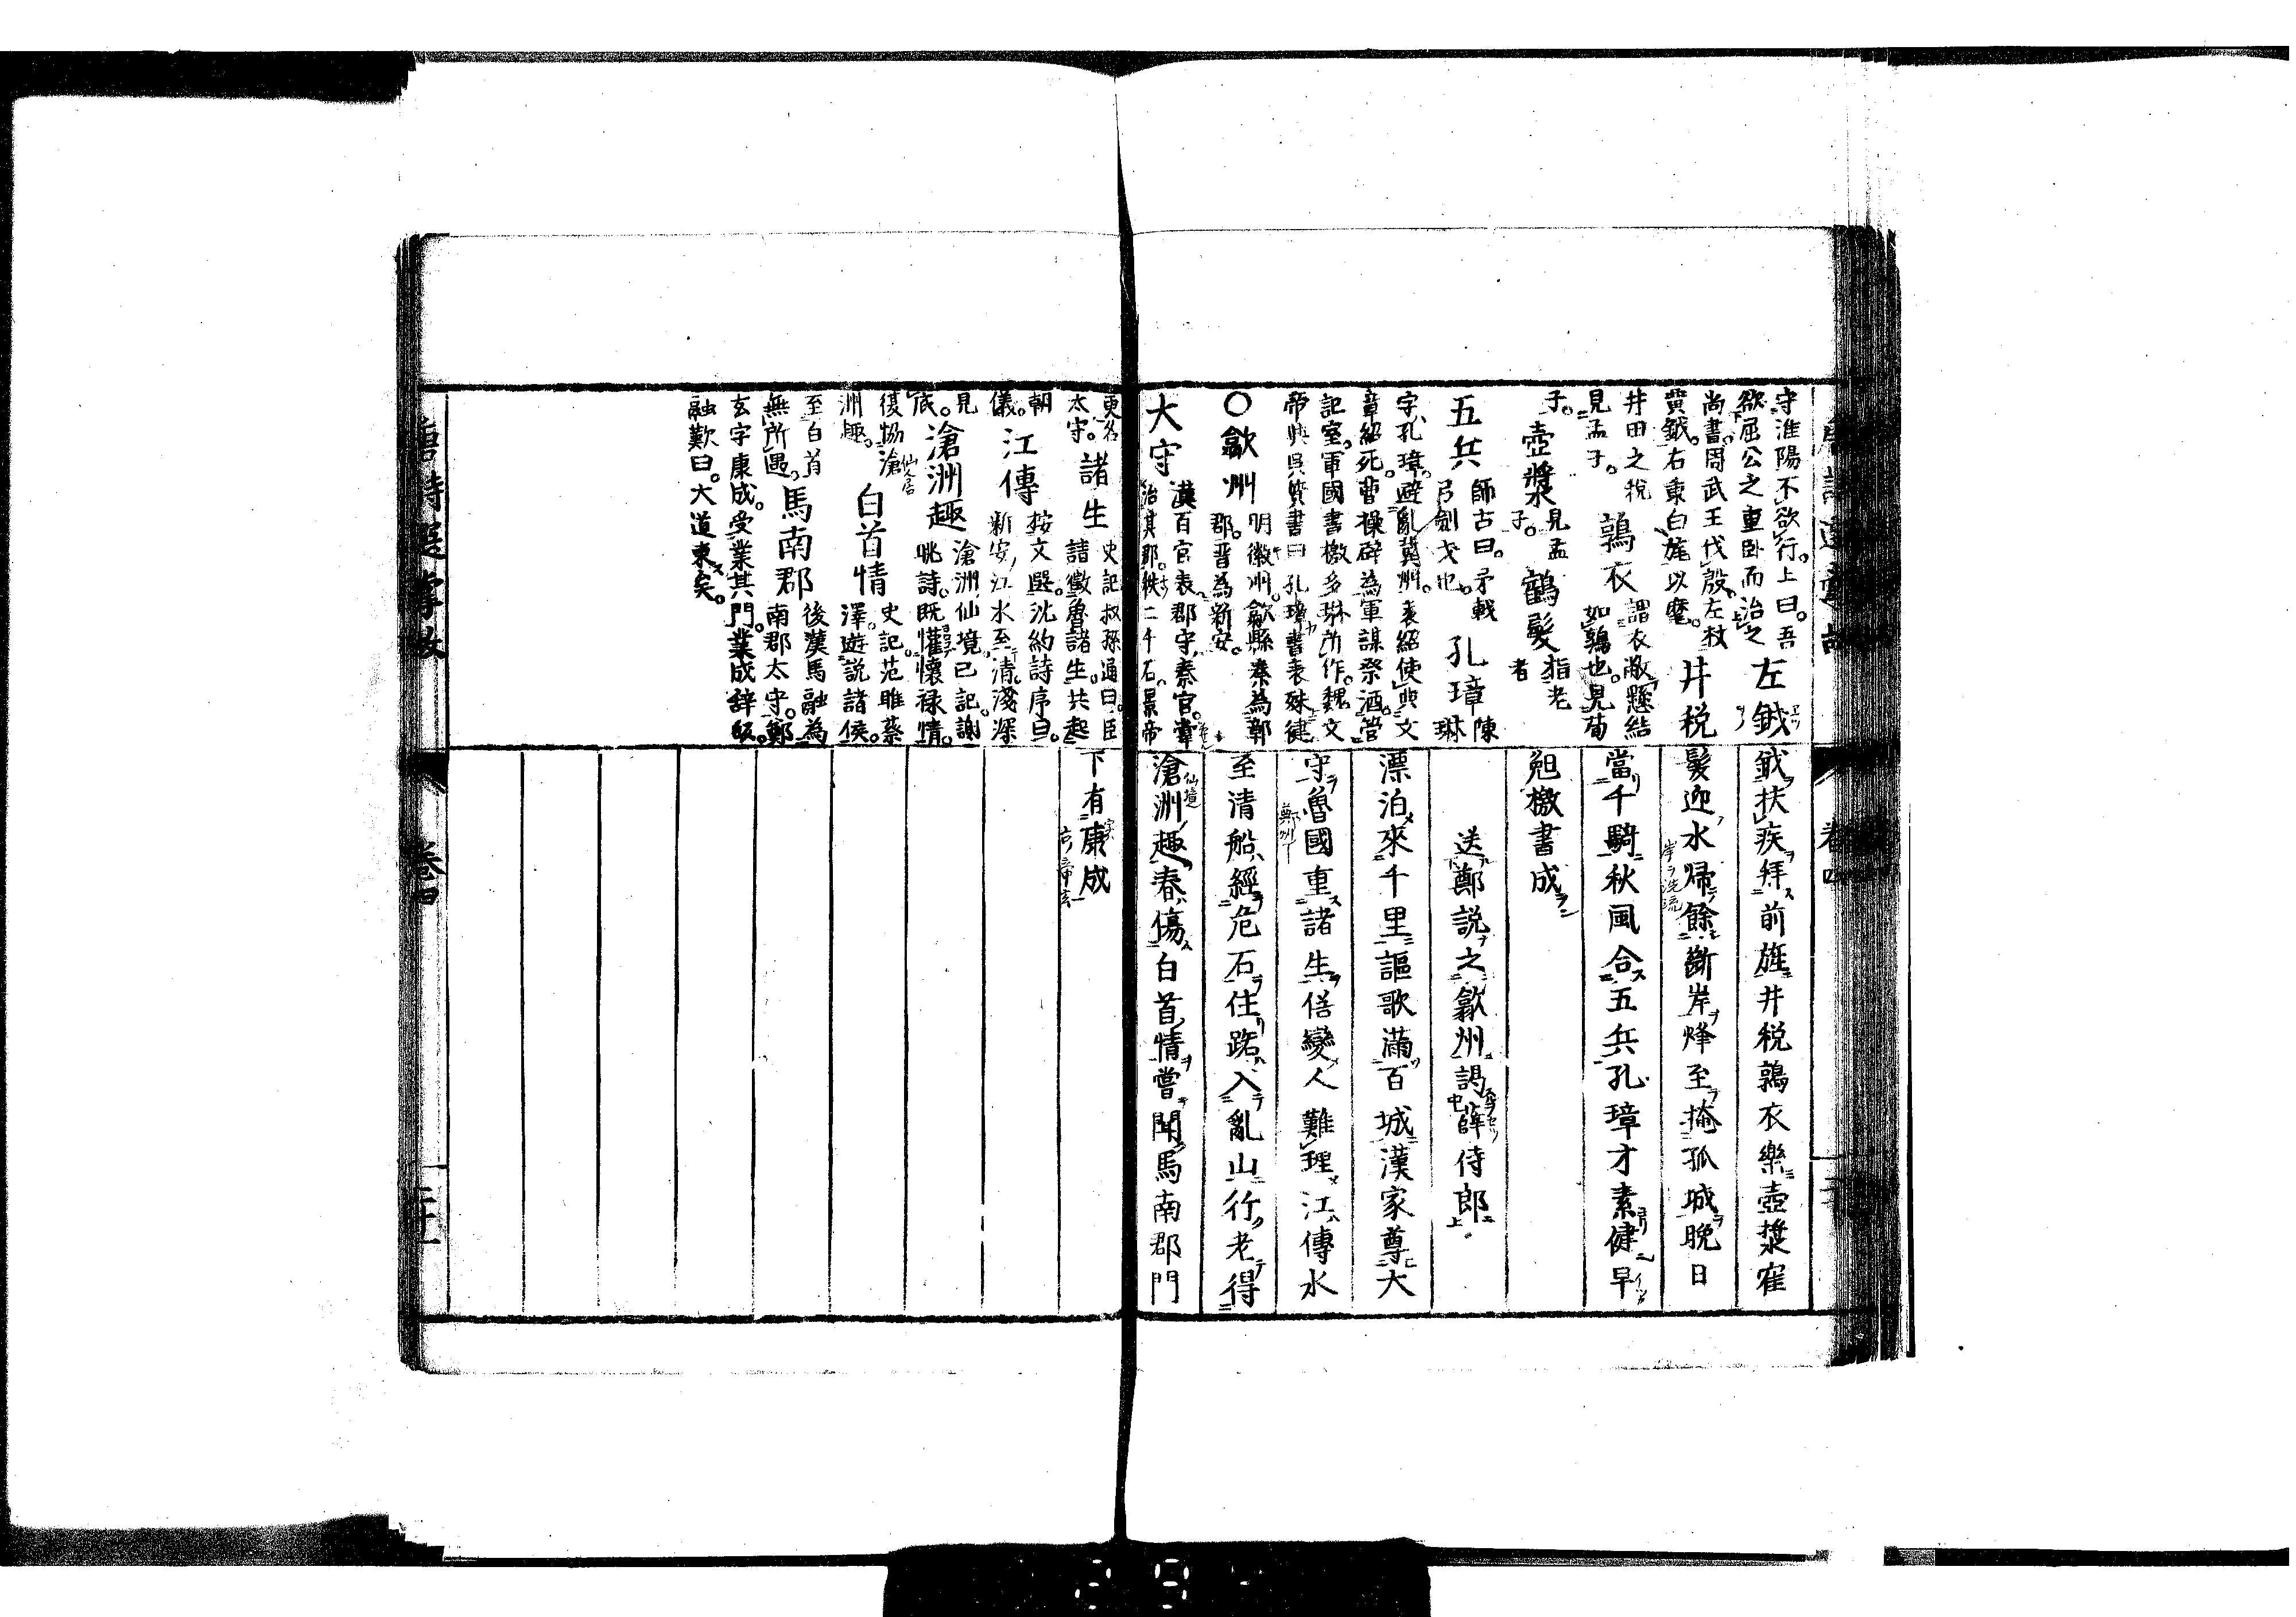 守淮陽不欲行上曰吾
欲屈公之重卧而治之
左鉞
尚書周武王伐殷左杖
黄鉞右秉白旄以麾
井税
井田之税
見孟子
鶉衣
謂衣敝懸結
如鶉也見荀
子
壺漿
見孟
子
鶴髮
指老
者
五兵
師古曰矛戟
弓劍戈也
孔璋
陳
琳
字孔璋避亂冀州袁紹使典文
章紹死曹操辟為軍謀祭酒管
記室軍國書檄多琳所作魏文
帝與呉質書曰孔璋書表殊健
〇歙州
明徽州歙縣秦為鄣
郡晋為新安
大守
漢百官表郡守秦官掌
治其郡秩二千石景帝
更名
太守
諸生
史記叔孫通曰臣
請徵魯諸生共起
朝
儀
江傳
按文選沈約詩序曰
新安江水至清淺深
見
底
滄洲趣
滄洲仙境已記謝
眺詩既懽懷禄情
復協滄
洲趣
白首情
史記范雎蔡
澤遊説諸侯
至白首
無所遇
馬南郡
後漢馬融為
南郡太守鄭
玄字康成受業其門業成辞皈
融歎曰大道東矣
鉞扶疾拜前旌井税鶉衣樂壺漿
髮迎水歸餘斷岸烽至掩孤城晩日
當千騎秋風合五兵孔璋才素健早
晩檄書成
送鄭説之歙州謁薛侍郎
漂泊來千里謳歌滿百城漢家尊大
守魯國重諸生俗變人難理江傳水
至清船經危石住路入亂山行老得
滄洲趣春傷白首情嘗聞馬南郡門
下有康成
卷四